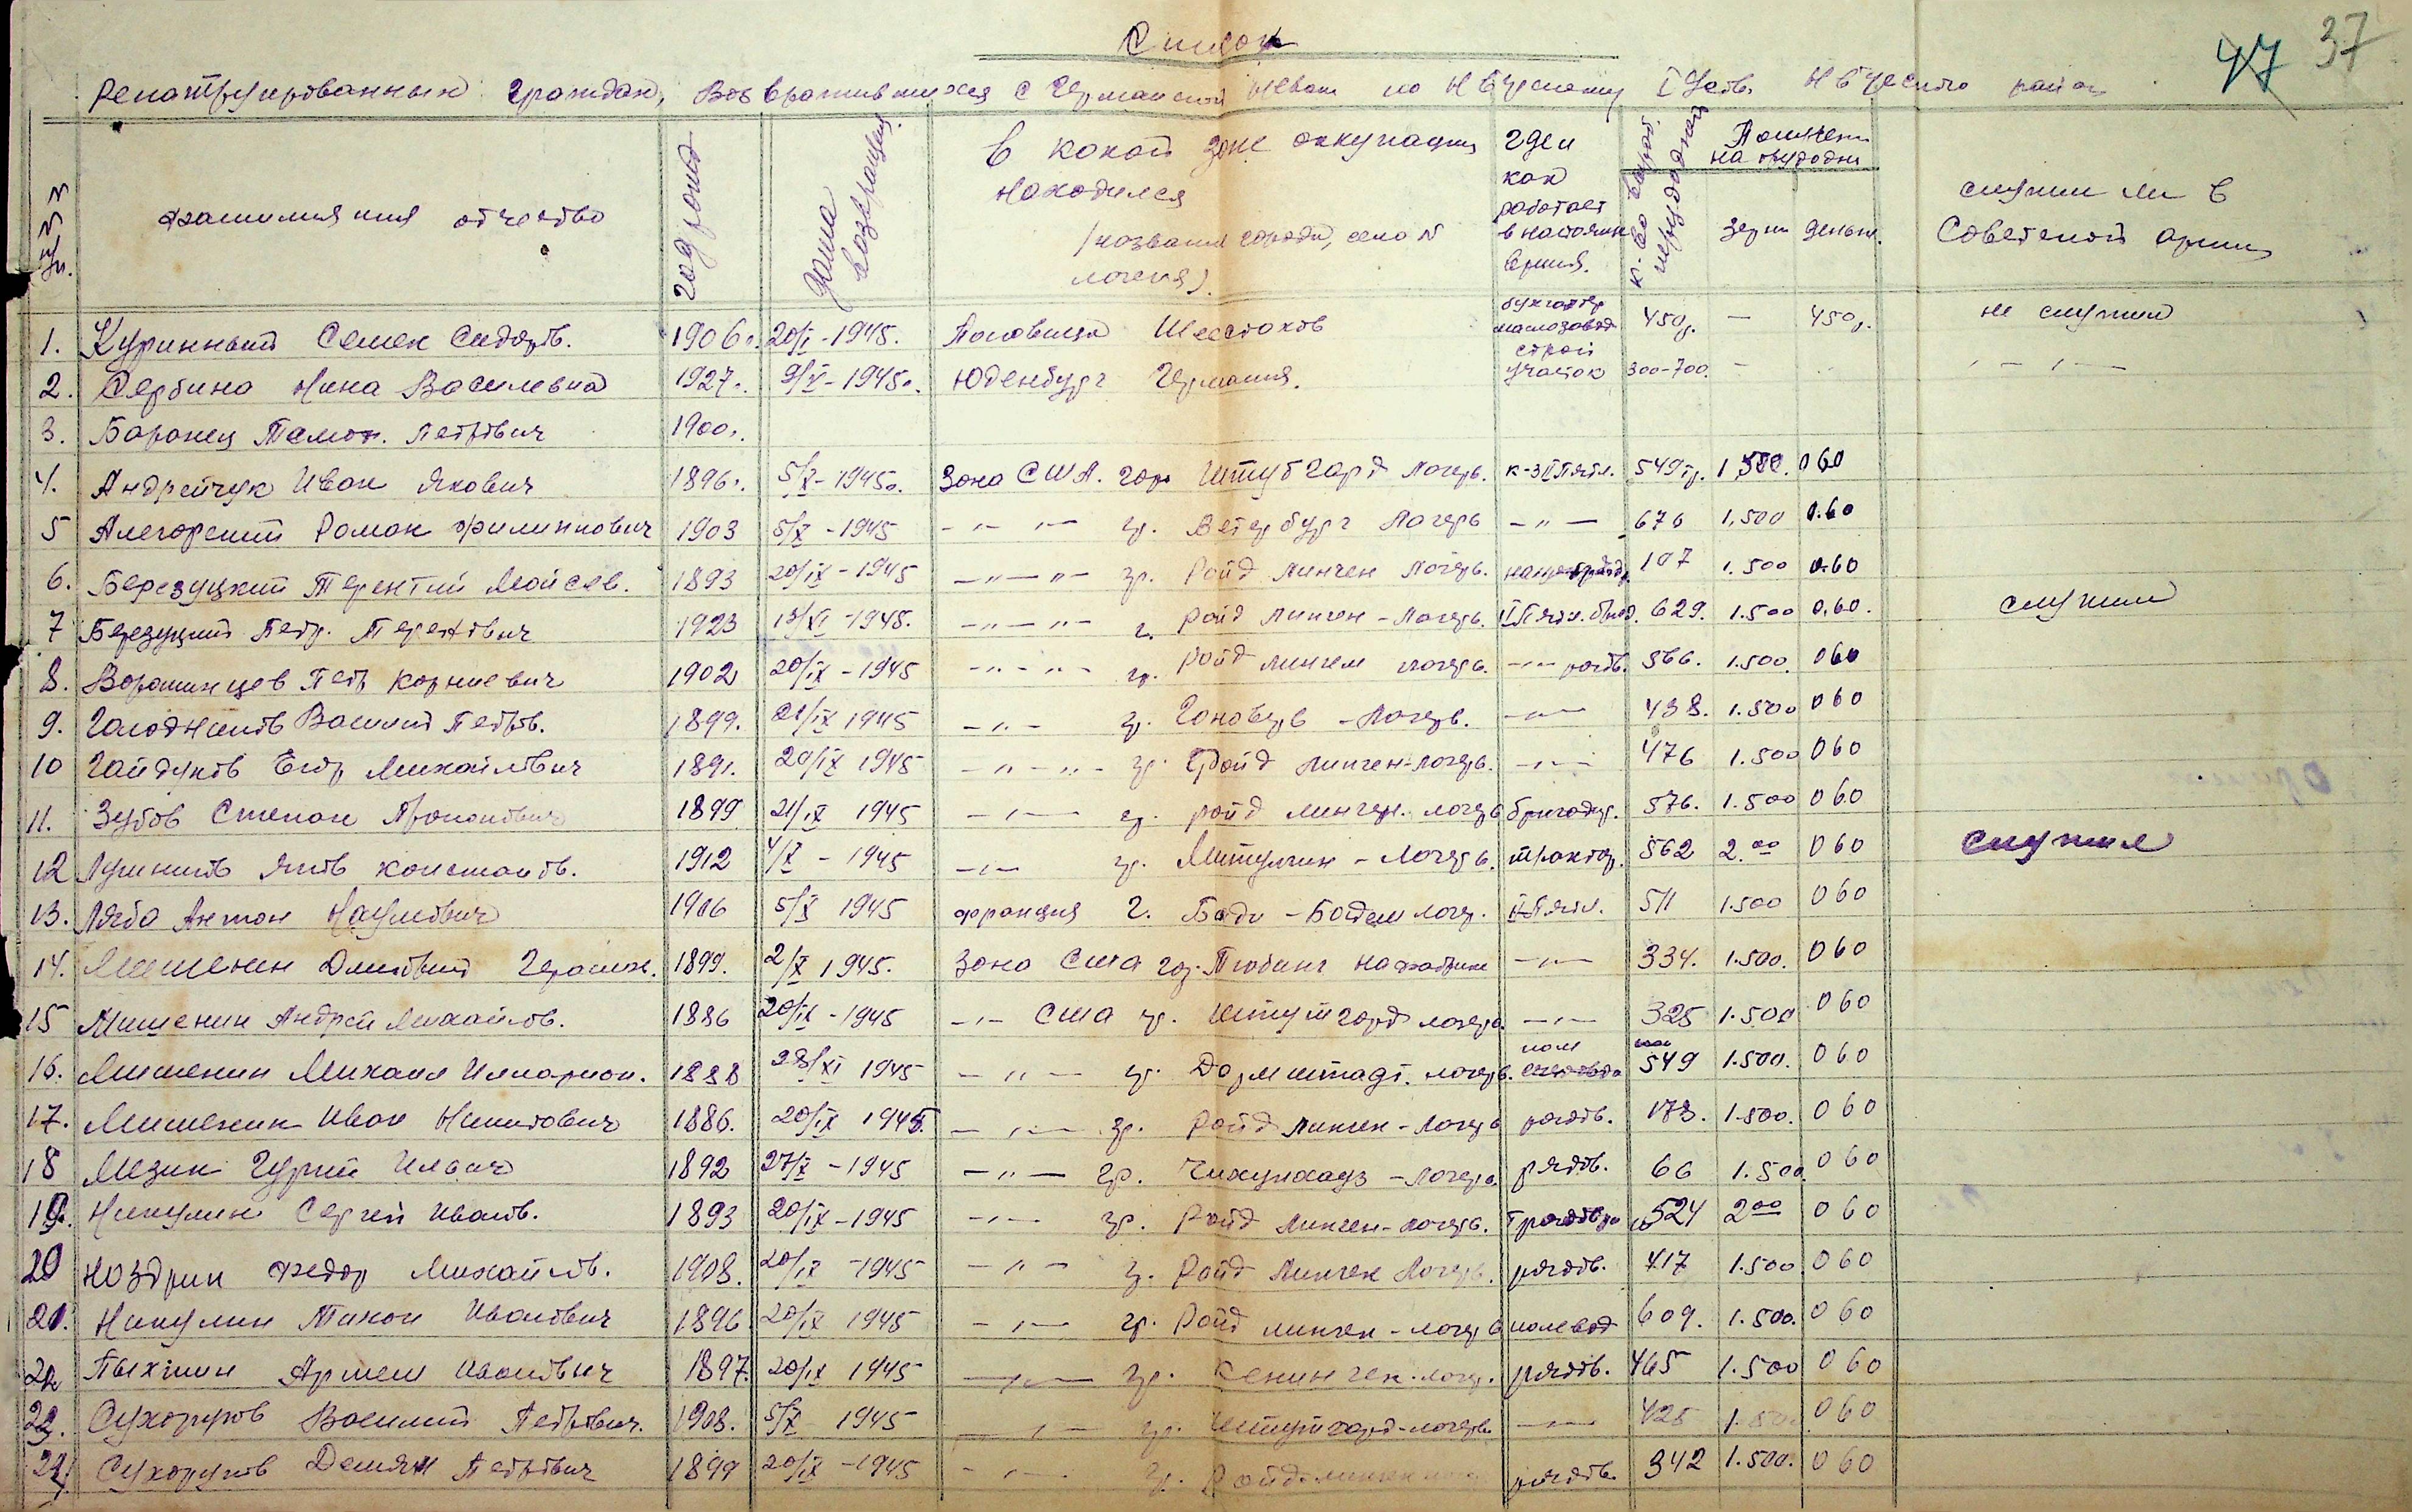 Список
47 37
Репатрированных граждан, возвратившихся с Германской
№ № п/п.
фамилия имя отчество
год рожд
дата возвращения
в какой зоне оккупации находился
/название города, село № лагеря/.
где и как работает в настоящ время.
к-во вырабо. трудодней
Получен на трудодни
зерна деньги.
служил ли в Советской армии
1. Куринный Семен Сидоров. 1906г. 20/I-1945. бухгалтер маслозавод 450р. — 450р. не служил
2. Сербина Нина Василевна 1927г. 9/V-1945г. Юденбург Германия. строй участок 300-700. — -"-"-
3. Баранец Петрович 1900г.
4. Андрейчук Иван Якович 1896г. 5/X-1945г. Зона США. гор Штутгард лагерь. к-з II Пятил. 549тр. 1.500. 0 60
5 Роман Филиппович 1903 5/X-1945 -"-"- гр. Лагерь -"- 676 1.500 0.60
6. Березуцкий Терентий Мойсев. 1893 20/IX-1945 -"-"- гр. Ройд Линген Лагерь. 107 1.500 0.60
7 Березуцкий Петр. Терентович 1923 13/XI-1945. -"-"- г. Ройд Линген-Лагерь. II Пятил. 629. 1.500 0.60. служил
8. Петр Корниевич 1902 20/IX-1945 -"-"- гр. Ройд Линген лагерь. -"- рядов. 566. 1.500. 0 60
9. Василий Петров. 1899. 21/IX 1945 -"- гр. Гановерв -Лагерь. -"- 438. 1.500 0 60
10 Гайдуков Егор Михайлович 1891. 20/IX 1945 -"-"- гр. Ройд Линген-лагерь. -"- 476 1.500 0 60
11. Зубов Степан 1899 21/IX 1945 -"- гр. ройд линген. лагерь бригадир. 576. 1.500 0 60
12 Яков Константов. 1912 4/X-1945 -"- гр. -Лагерь. трактор. 562 2.00 0 60 служил
13. Антон Наумович 1906 5/X 1945 франция г. лагер. II Пятил. 511 1.500 0 60
14. Мишенин Герасим. 1899. 2/X 1945. Зона Сша гор. на фабрике -"- 334. 1.500. 0 60
15 Мишенин Андрей Михайлов. 1886 20/IX-1945 -"- Сша гр. Штутгард лагерь -"- 325 1.500 0 60
16. Мишенин Михаил Илларион. 1888 28/XI 1945 -"- гр. Дармштадт. лагерь. 549 1.500. 0 60
17. Мишенин Иван Никитович 1886. 20/IX 1945. -"- гр. Ройд Линген-Лагерь рядов. 173. 1.500. 0 60
18 Мезин Гурий Ильич 1892 27/X-1945 -"- гр. -Лагерь. рядов. 66 1.500. 0 60
19. Никулин Сергей Иванов. 1893 20/IX-1945 -"- гр. Ройд Линген-лагерь. 524 2.00 0 60
20 Ноздрин Федор Михайлов. 1908. 20/IX-1945 -"- г. Ройд Линген Лагерь. рядов. 417 1.500 0 60
21. Никулин Тихон Иванович 1896 20/IX 1945 -"- гр. Ройд линген-лагерь полевод 609. 1.500. 0 60
22 Пыхтин Иванович 1897. 20/IX 1945 -"- гр. лагер. рядов. 465 1.500 0 60
23. Сухоруков Василий Петрович. 1908. 5/X 1945 -"- гр. Штутгард-лагерь -"- 425 0 60
24. Сухоруков Демян Петрович 1899 20/IX-1945 -"- гр. Ройд-линген рядов. 342 1.500. 0 60